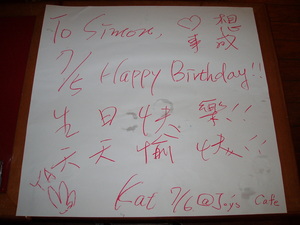 To Simon, ♡想
事成
7/5 Happy Birthday!!
生日快樂!!
天天愉快!!
Kat 7/6@Jay's Cafe